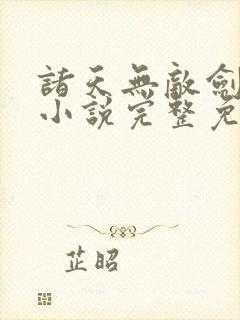 諸天無敵劍
小說完整免
芷昭